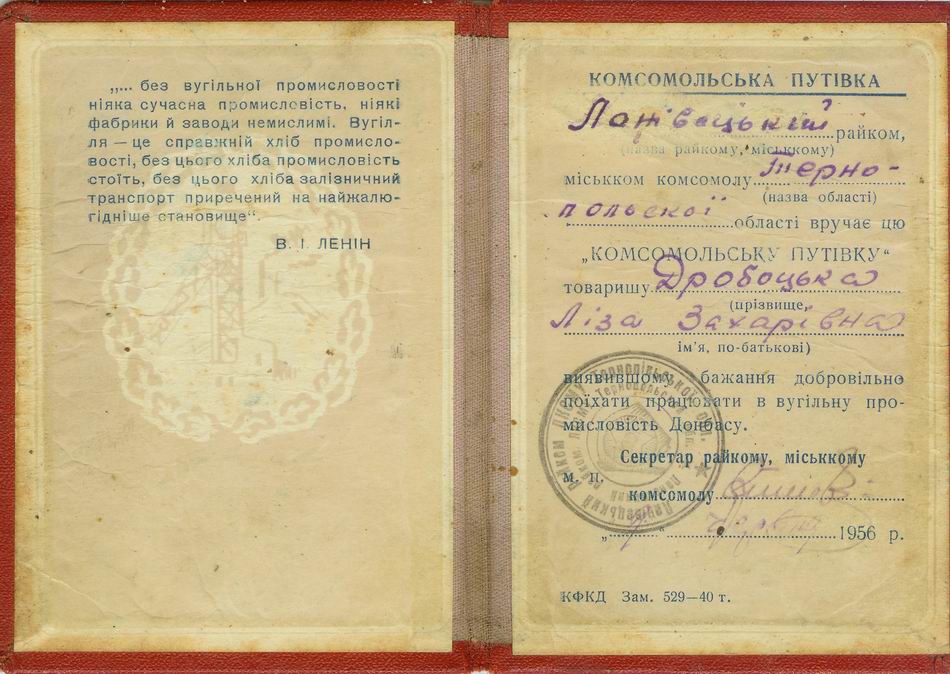 „... без вугільної промисловості
ніяка сучасна промисловість, ніякі
фабрики й заводи немислимі. Вугіл-
ля — це справжній хліб промисло-
вості, без цього хліба промисловість
стоїть, без цього хліба залізничний
транспорт приречений на найжалю-
гідніше становище“.
В. І. ЛЕНІН
КОМСОМОЛЬСЬКА ПУТІВКА
райком,
(назва райкому, міськкому)
міськком комсомолу Терно-
(назва області)
польської області вручає цю
„КОМСОМОЛЬСЬКУ ПУТІВКУ“
товаришу Дробоцька
(прізвище,
Ліза Захарівна
ім’я, по-батькові)
виявившому бажання добровільно
поїхати працювати в вугільну про-
мисловість Донбасу.
Секретар райкому, міськкому
м. п.
комсомолу
„ “ 1956 р.
КФКД Зам. 529—40 т.